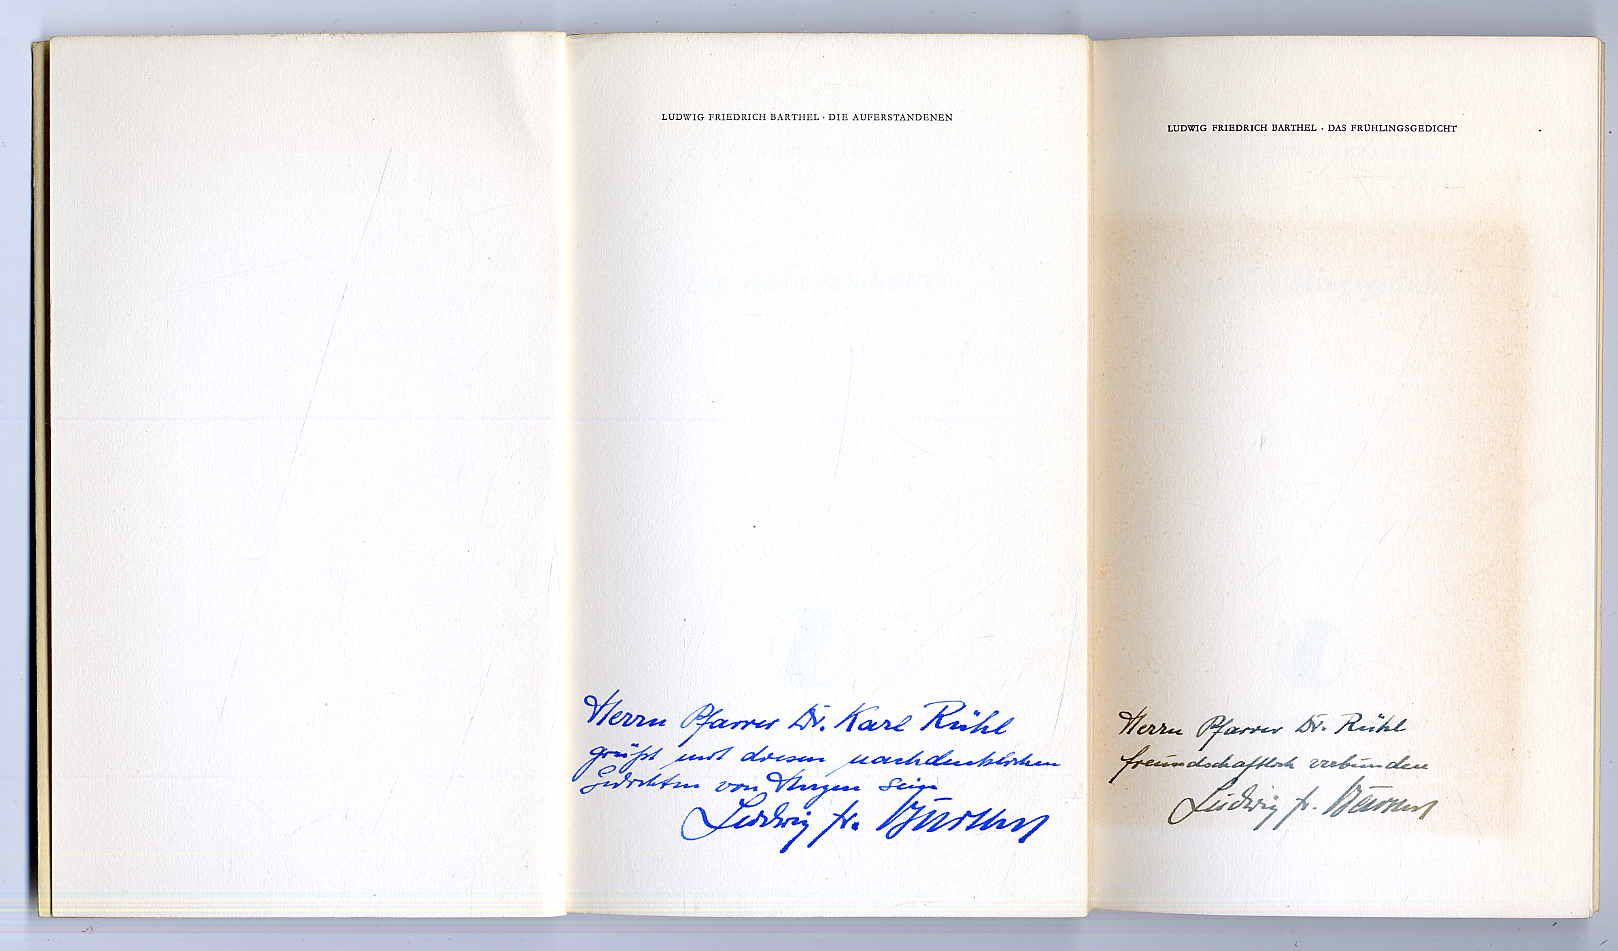 LUDWIG FRIEDRICH BARTHEL · DIE AUFERSTANDENEN
Herrn Pfarrer Dr. Karl Rühl
grüßt mit diesen nachdenklichen
Gedichten von Herzen sein
Ludwig Fr. Barthel
LUDWIG FRIEDRICH BARTHEL · DAS FRÜHLINGSGEDICHT
Herrn Pfarrer Dr. Rühl
freundschaftlich verbunden
Ludwig Fr. Barthel